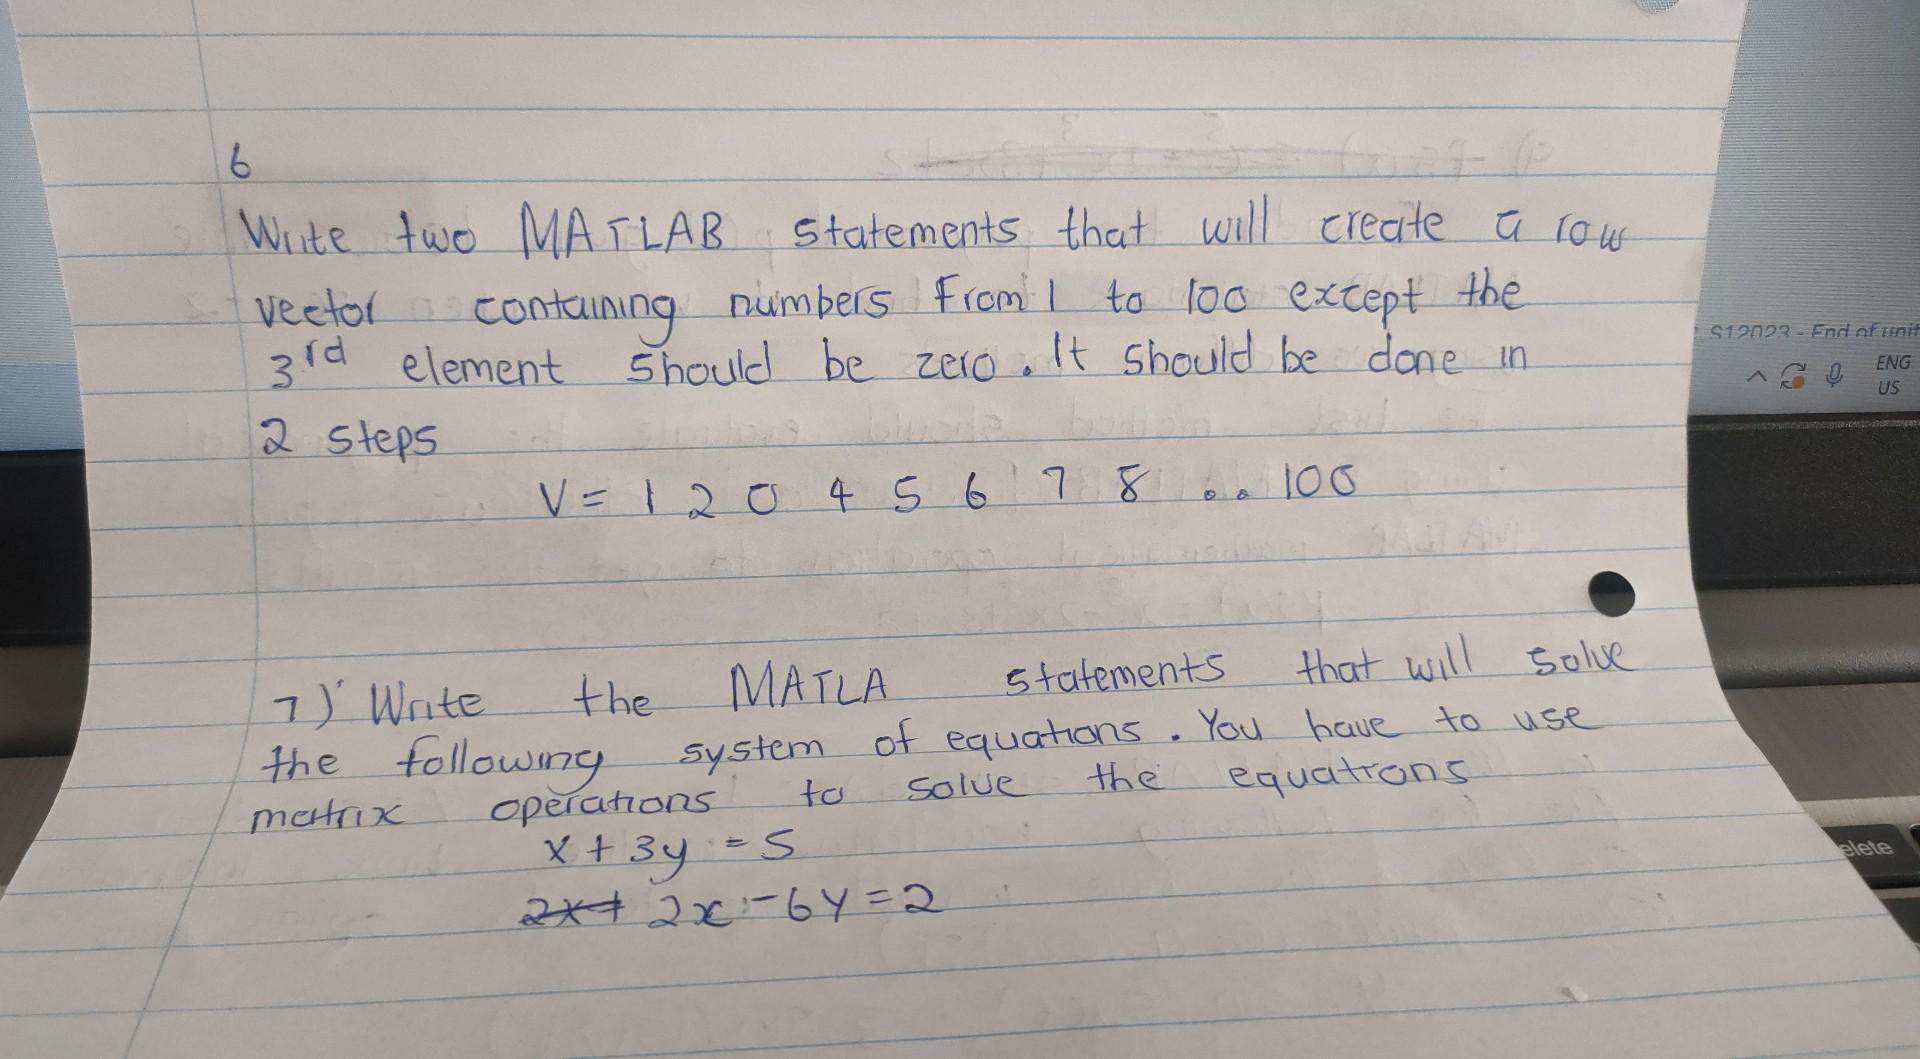 6
Write two MATLAB statements that will create a row
vector containing numbers from 1 to 100 except the
3rd element should be zero. It should be done in
2 steps
V = 1 2 0 4 5 6 7 8 .. 100
7) Write the MATLA statements that will solve
the following system of equations. You have to use
matrix operations to solve the equations
x + 3y = 5
2x+ 2x - 6y = 2
S12023 - End of unit
ENG
US
elete